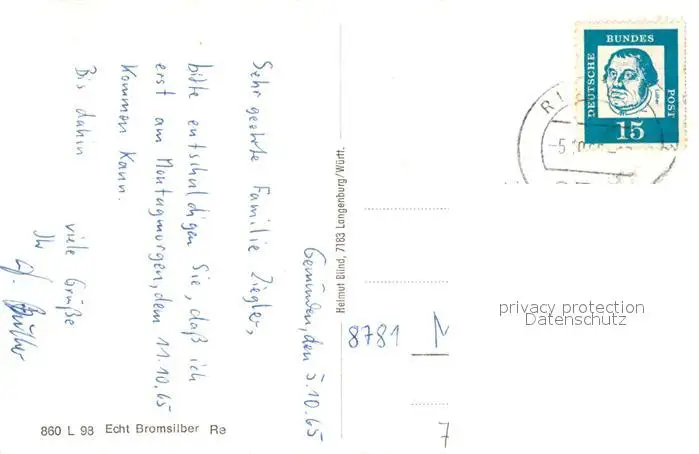 Gemünden, den 5.10.65
Sehr geehrte Familie Ziegler,
bitte entschuldigen Sie, daß ich
erst am Montagmorgen, dem 11.10.65
kommen kann.
Bis dahin
viele Grüße
Ihr
860 L 98 Echt Bromsilber Re
Helmut Blind, 7183 Langenburg/Württ.
DEUTSCHE
BUNDES
POST
15
-5.10
8781 M
7
privacy protection
Datenschutz